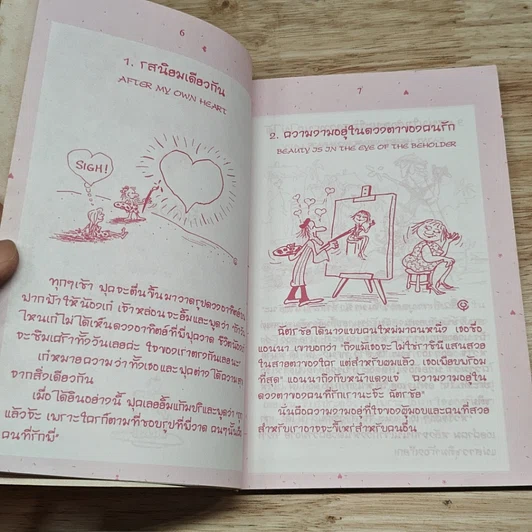 6
1. รสนิยมเดียวกัน
AFTER MY OWN HEART
SIGH!
ทุกๆเช้า ฟุคจะตื่นขึ้นมาวาดรูปดวงอาทิตย์
ฟากฟ้าให้น้องเก๋ เจ้าหล่อนจะยิ้มและพูดว่า
ไหนเก๋ไม่ได้เห็นดวงอาทิตย์ที่พี่ฟุควาด ชีวิต
จะซึมเศร้าทั้งวันเลยค่ะ ใจของเราตรงกันเลยนะ
เก๋หมายความว่าทั้งเธอและฟุคต่าง
จากสิ่งเดียวกัน
เมื่อได้ยินอย่างนี้ ฟุคเลยยิ้มแก้มปริและพูดว่า
แล้วจ๊ะ เพราะใครก็ตามที่ชอบรูปที่พี่วาด คนๆนั้น
คนที่รักพี่"
7
2. ความงามอยู่ในดวงตาของคนรัก
BEAUTY IS IN THE EYE OF THE BEHOLDER
ฉัตรชัยได้นางแบบคนใหม่มาคนหนึ่ง เธอชื่อ
แอนนา เขาบอกว่า "ถึงแม้เธอจะไม่ใช่ราชินีแสนสวย
ในสายตาของใคร แต่สำหรับผมแล้ว เธอเพียบพร้อม
ที่สุด" แอนนาถึงกับหน้าแดงแจ๋ "ความงามอยู่ใน
ดวงตาของคนที่รักเรานะจ๊ะ ฉัตรชัย"
นั่นคือความงามอยู่ที่ใจของผู้มอง และคนที่สวย
สำหรับเราอาจจะขี้เหร่สำหรับคนอื่น